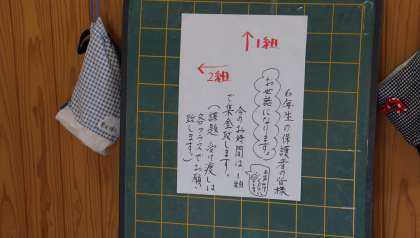 ↑1組
←2組
6年生の保護者の皆様
お世話になります。
今のお時間は1組
で集金致します。
(課題受け渡しは
各クラスでお願い
致します。)